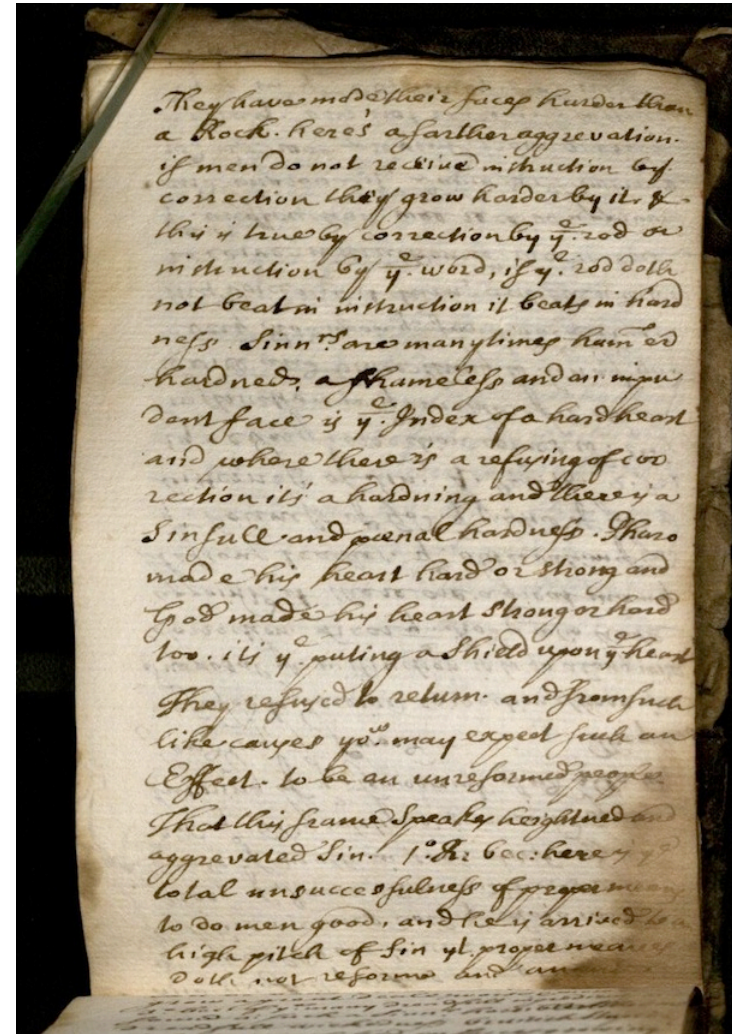 They have made their faces harder than
a Rock. here's a farther aggrevation.
if men do not receive instruction by
correction they grow harder by it. &
this is true by correction by yᵉ. rod or
instruction by yᵉ. word, if yᵉ. rod doth
not beat in instruction it beats in hard
ness. Sinnʳˢ are many times ham̅er
hardned, a shameless and an impu
dent face is yᵉ. Index of a hard heart
and where there is a refusing of cor
rection its' a hardning and there is a
Sinfull and pœnal hardness. Pharo
made his heart hard or strong and
God made his heart strong or hard
too. its yᵉ. puting a Shield upon yᵉ heart
They refused to return. and from such
like causes yoᵘ. may expect such an
Effect. to be an unreformed people.
That this frame Speakes heightned and
aggrevated Sin. 1ᵒ. R: bec: here is yᵉ
total unsuccessfulness of proper means
to do men good, and he is arrived to a
high pitch of Sin yᵗ. proper meanes
Doth not reforme and